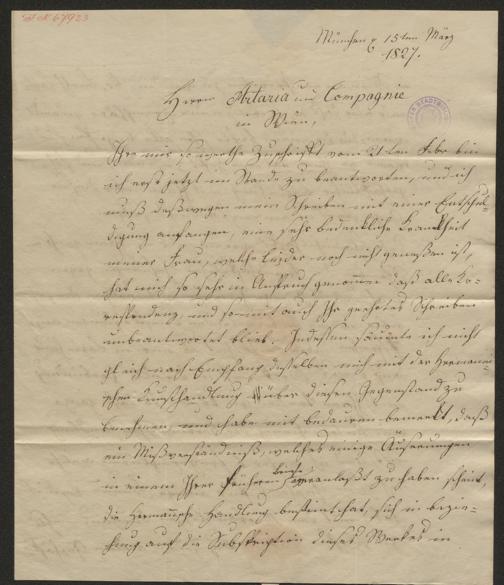 I N 67923
München d 15ten März
1827.
Herrn Artaria und Compagnie
in Wien,
Ihre mir so werthe Zuschrift vom 21ten Febr bin
ich erst jetzt im Stande zu beantworten, und ich
muß deßwegen mein Schreiben mit einer Entschul-
digung anfangen, eine sehr bedenkliche Krankheit
meiner Frau, welche leider noch nicht genesen ist,
hat mich so sehr in Anspruch genommen daß alle Ko-
respondenz, und somit auch Ihr geehrtes Schreiben
unbeantwortet blieb. Indessen säumte ich nicht
gleich nach Empfang desselben mich mit der Hermann-
schen Kunsthandlung über diesen Gegenstand zu
benehmen, und habe mit bedauren bemerkt, daß
ein Mißverständniß, welches einige Äuserungen
in einem Ihrer früheren Briefe veranlaßt zu haben scheint,
die Hermannsche Handlung bestimt hat, sich in bezie-
hung auf die Subskription dieses Werkes in